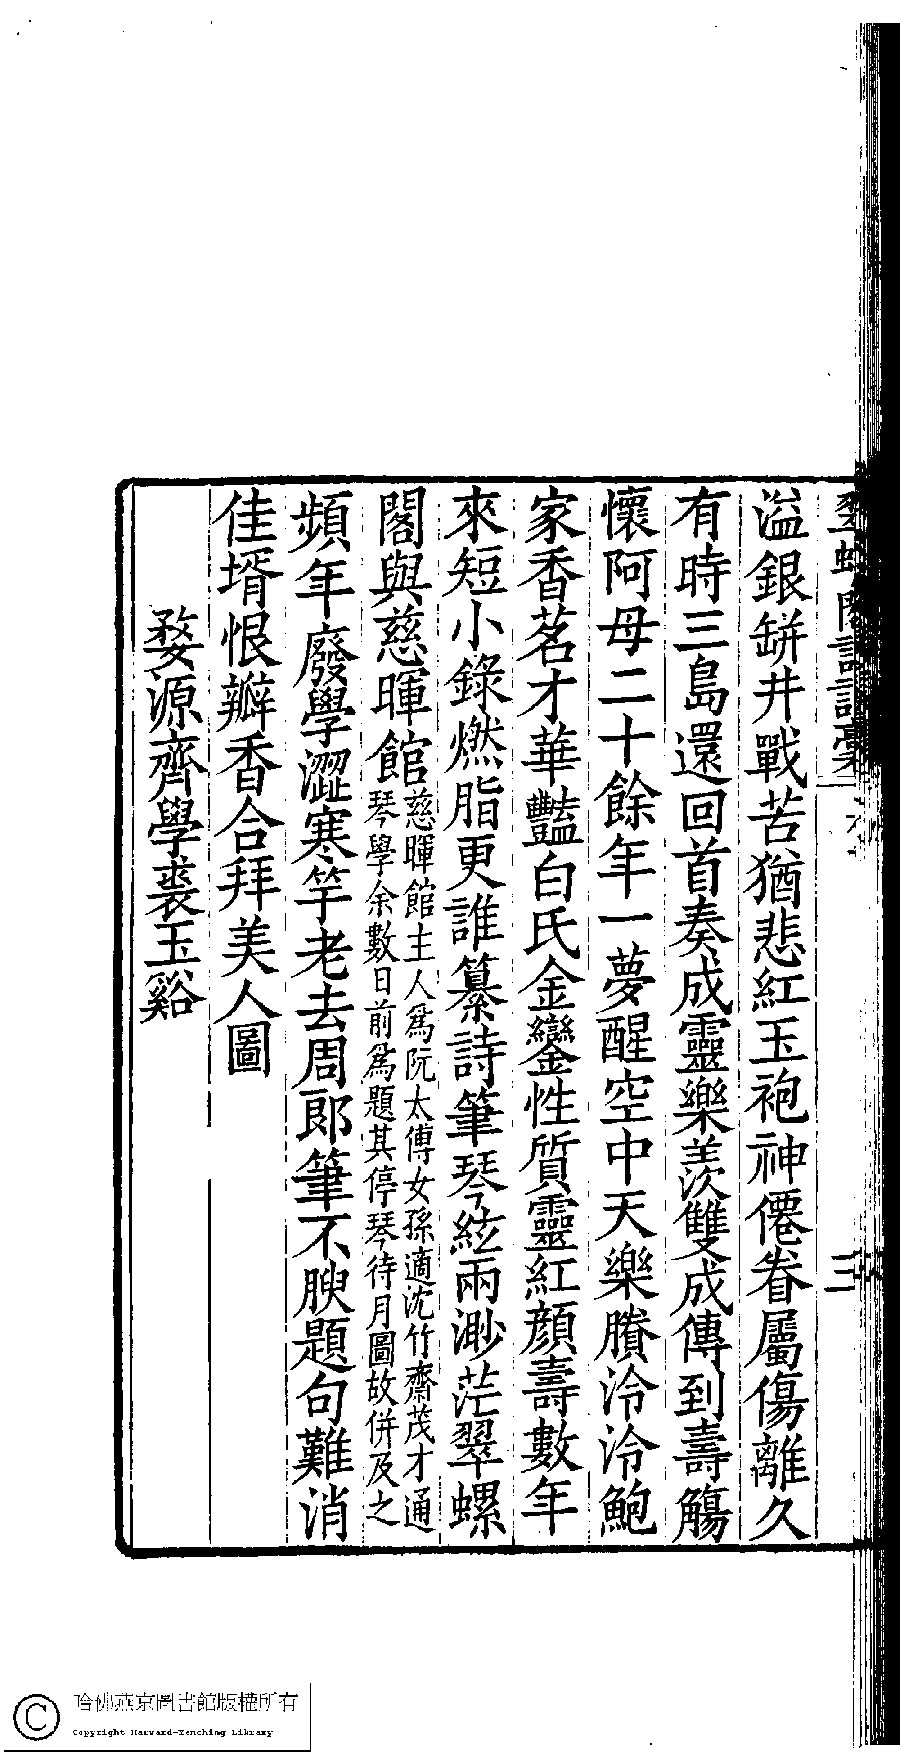 溢銀缾井戰苦猶悲紅玉袍神僊眷屬傷離久
有時三島還回首奏成靈樂羨雙成傳到壽觴
懷阿母二十餘年一夢醒空中天樂賸泠泠鮑
家香茗才華豔白氏金鑾性質靈紅顏壽數年
來短小錄燃脂更誰纂詩筆琴絃兩渺茫翠螺
閣與慈暉館慈暉館主人爲阮太傅女孫適沈竹齋茂才通
琴學余數日前爲題其停琴待月圖故併及之
頻年廢學澀寒竽老去周郎筆不腴題句難消
佳壻恨瓣香合拜美人圖
婺源齊學裘玉谿
翠螺閣詩詞稾
三
哈佛燕京圖書館版權所有
Copyright Harvard-Yenching Library